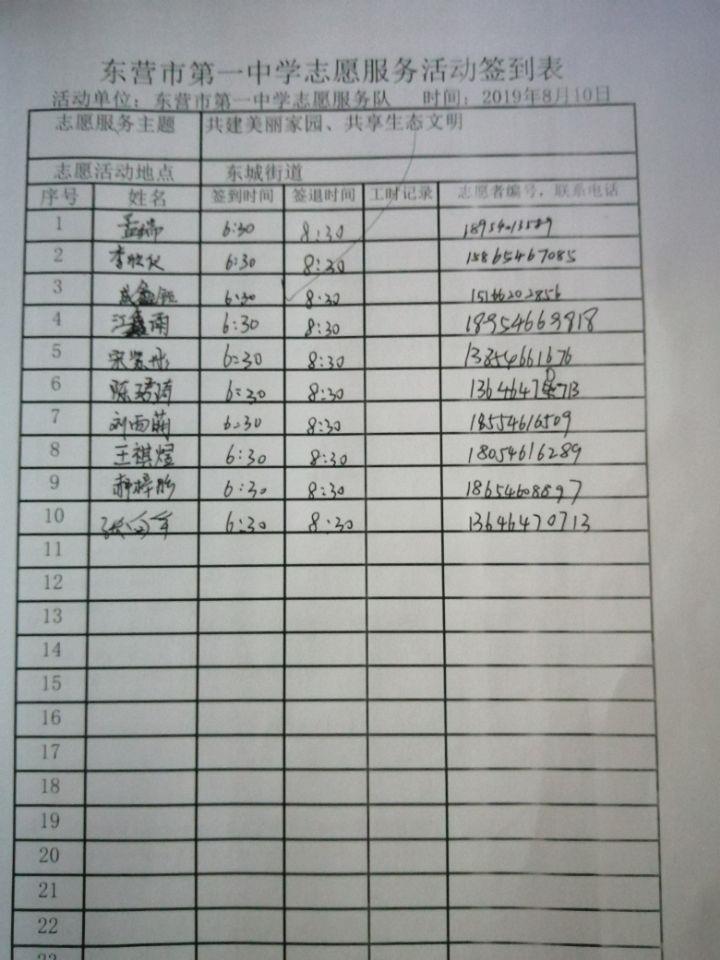 东营市第一中学志愿服务活动签到表
活动单位：东营市第一中学志愿服务队 时间：2019年8月10日
志愿服务主题 共建美丽家园、共享生态文明
志愿活动地点 东城街道
序号 姓名 签到时间 签退时间 工时记录 志愿者编号，联系电话
1 孟瑞 6:30 8:30
2 6:30 8:30 15865467085
3 6:30 8:30 15146202856
4 江鑫雨 6:30 8:30 18954669818
5 6:30 8:30 13854661676
6 陈珺琦 6:30 8:30
7 刘雨萌 6:30 8:30 18554616509
8 王祺煊 6:30 8:30 18054616289
9 6:30 8:30 18654608897
10 6:30 8:30 13646470713
11
12
13
14
15
16
17
18
19
20
21
22
23